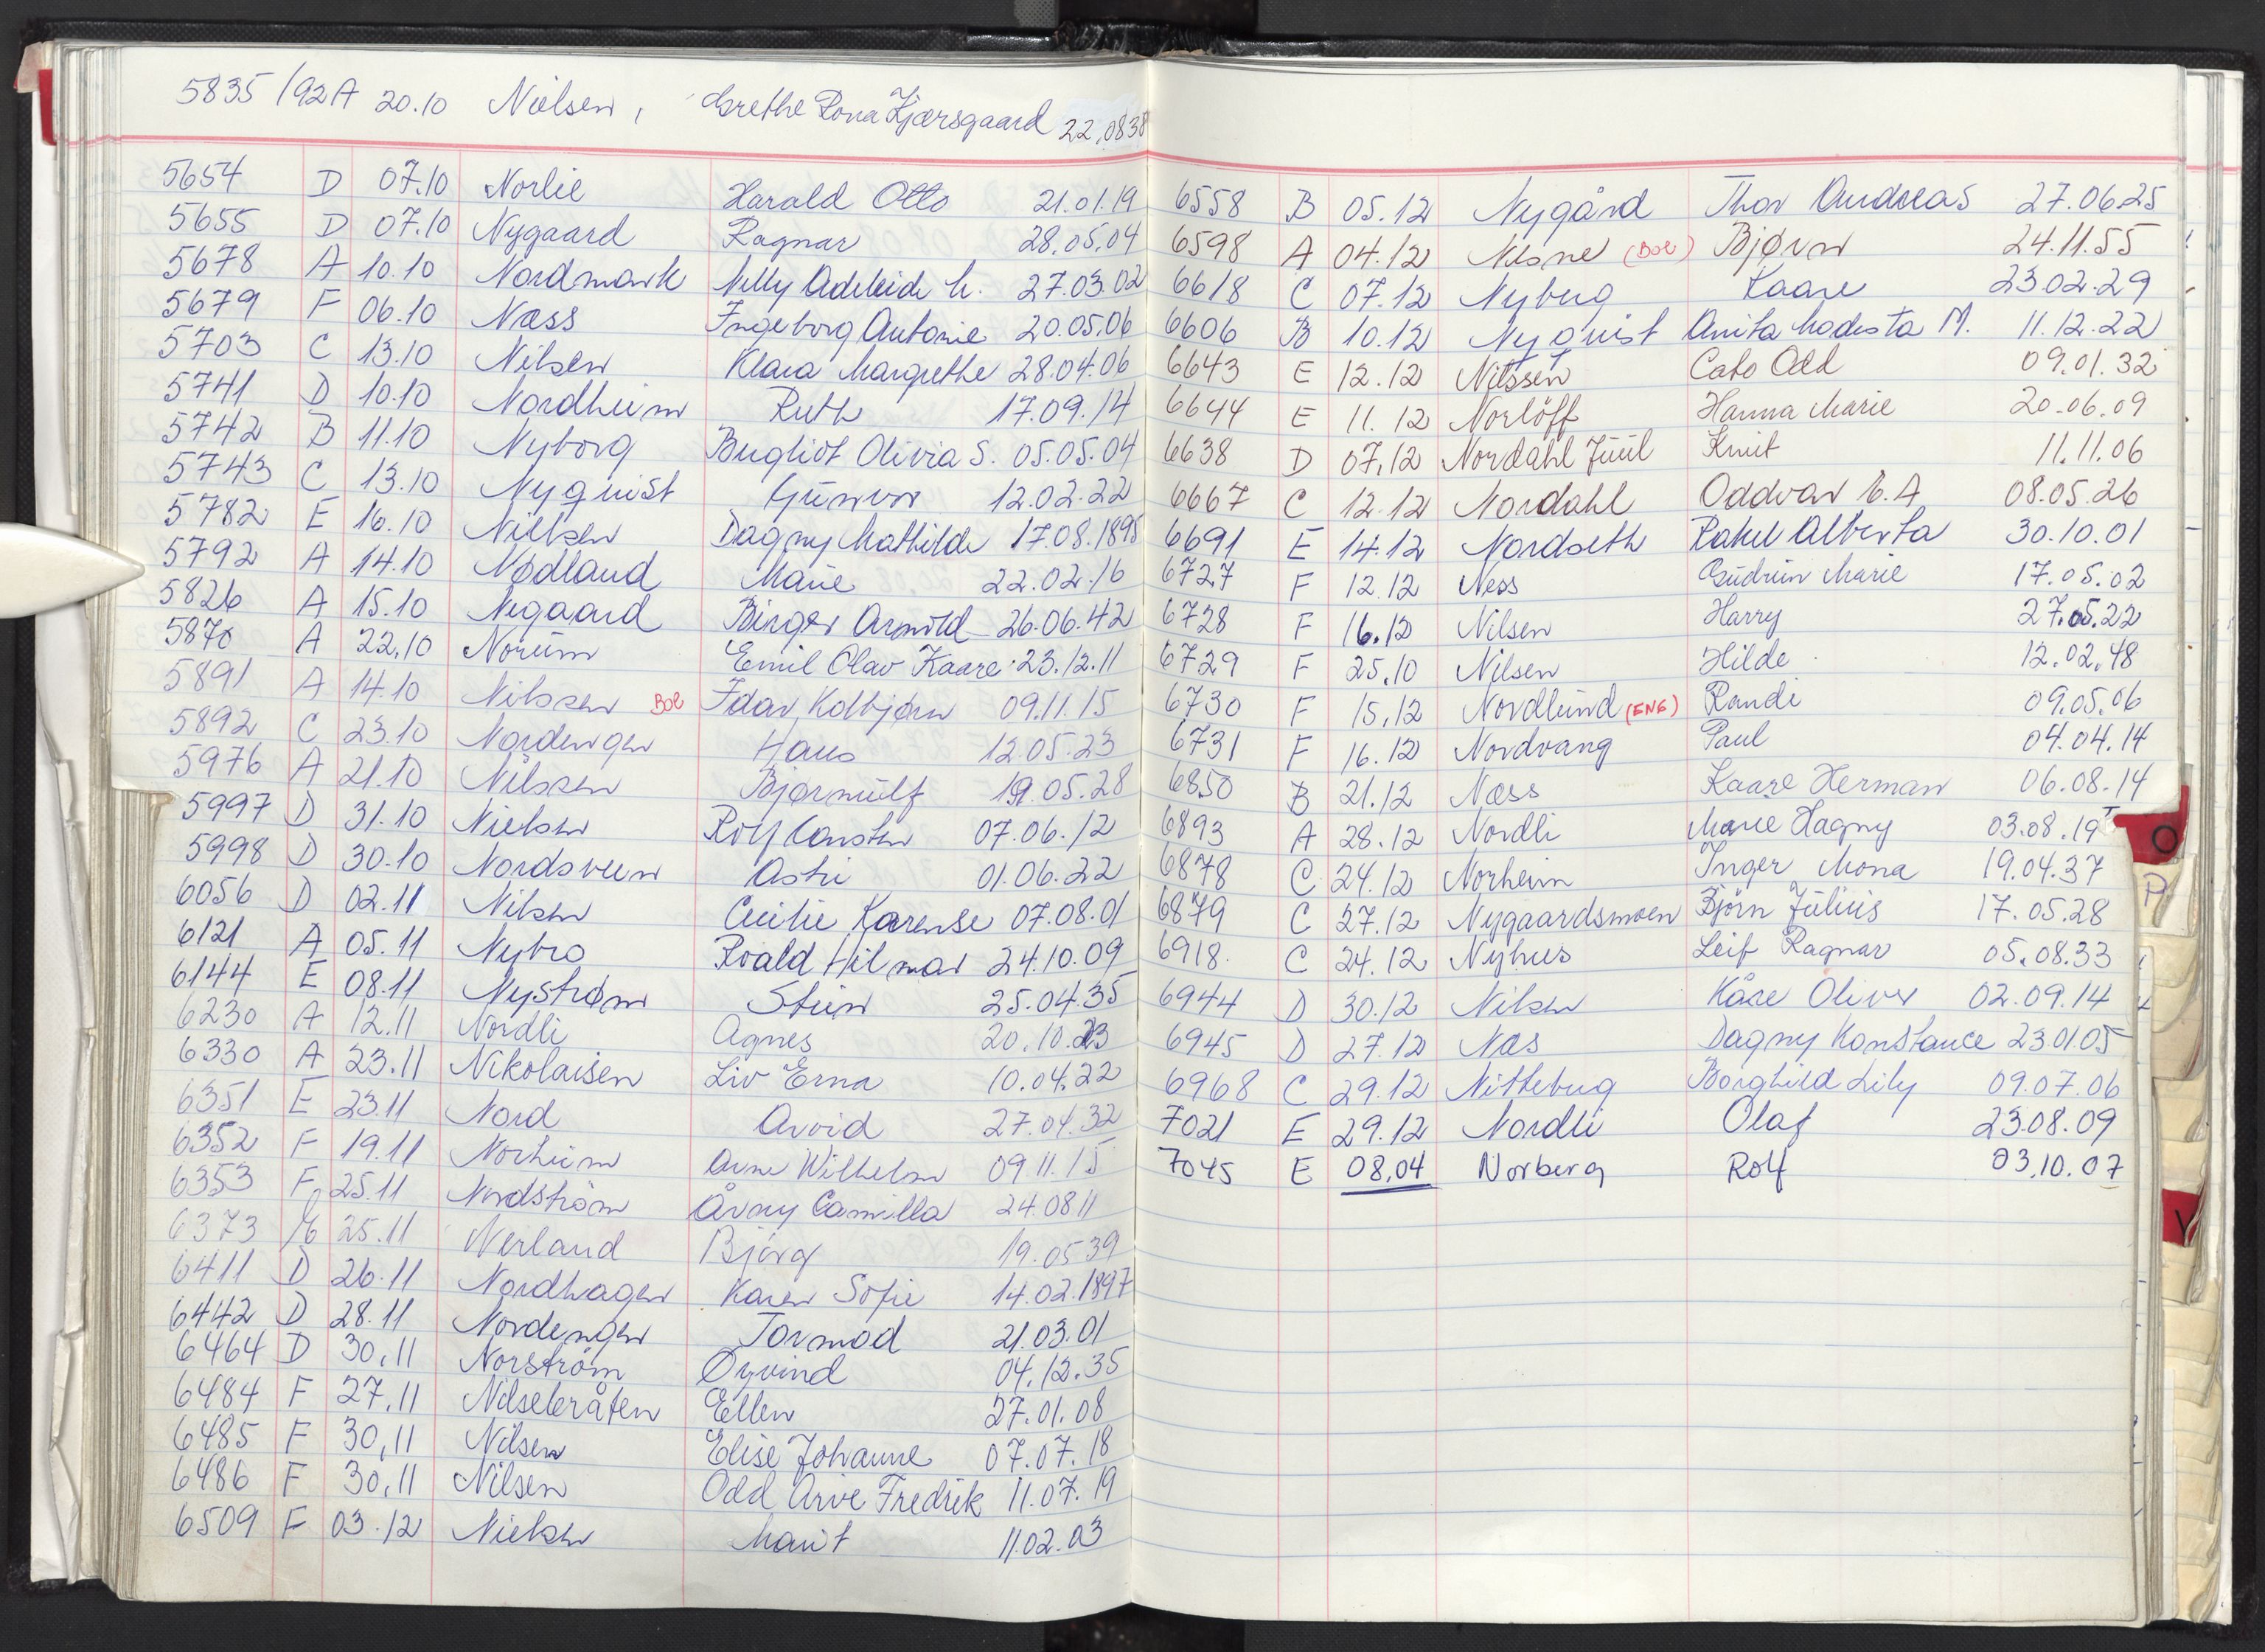 5835/92A 20.10 Nielsen, Grethe Rona Kjærsgaard 22.0838
5654 D 07.10 Norlie Harald Otto 21.01.19
5655 D 07.10 Nygaard Ragnar 28.05.04
5678 A 10.10 Nordmark Nelly Adeleide M. 27.03.02
5679 F 06.10 Næss Ingeborg Antonie 20.05.06
5703 C 13.10 Nilsen Klara Margrethe 28.04.06
5741 D 10.10 Nordheim Ruth 17.09.14
5742 B 11.10 Nyborg Bergliot Olivia S. 05.05.04
5743 C 13.10 Nyquist Gunvor 12.02.22
5782 E 16.10 Nielsen Dagny Mathilde 17.08.1895
5792 A 14.10 Nødland Marie 22.02.16
5826 A 15.10 Negaard Birger Arnold 26.06.42
5870 A 22.10 Norum Emil Olav Kaare 23.12.11
5891 A 14.10 Nilssen Bol Idar Kolbjørn 09.11.15
5892 C 23.10 Nordengen Hans 12.05.23
5976 A 21.10 Nilssen Bjørnulf 19.05.28
5997 D 31.10 Nielsen Rolf Carsten 07.06.12
5998 D 30.10 Nordsveen Astri 01.06.22
6056 D 02.11 Nilsen Cecilie Karense 07.08.01
6121 A 05.11 Nybro Roald Hilmar 24.10.09
6144 E 08.11 Nystrøm Stein 25.04.35
6230 A 12.11 Nordli Agnes 20.10.23
6330 A 23.11 Nikolaisen Liv Erna 10.04.22
6351 E 23.11 Nord Arvid 27.04.32
6352 F 19.11 Norheim Arne Wilhelm 09.11.15
6353 F 25.11 Nordström Årny Camilla 24.0811
6373 25.11 Nerland Bjørg 19.0539
6411 D 26.11 Nordhagen Karen Sofie 14.02.1897
6442 D 28.11 Nordengen Tormod 21.03.01
6464 D 30.11 Norström Øyvind 04.12.35
6484 F 27.11 Nilsebråten Ellen 27.01.08
6485 F 30.11 Nilsen Elise Johanne 07.07.18
6486 F 30.11 Nilsen Odd Arve Fredrik 11.07.19
6509 F 03.12 Nielsen Marit 11.02.03
6558 B 05.12 Nygård Thor Andreas 27.06.25
6598 A 04.12 Nesne (Bol) Bjørn 24.11.55
6618 C 07.12 Nyberg Kaare 23.02.29
6606 B 10.12 Nyquist Anita Modesta M. 11.12.22
6643 E 12.12 Nilssen Cato Odd 09.01.32
6644 E 11.12 Norlöff Hanna Marie 20.06.09
6638 D 07.12 Nordahl Juul Knut 11.11.06
6667 C 12.12 Nordahl Oddvar M.A 08.05.26
6691 E 14.12 Nordseth Rakel Alberta 30.10.01
6727 F 12.12 Ness Gudrun Marie 17.05.02
6728 F 16.12 Nilsen Harry 27.05.22
6729 F 25.10 Nilsen Hilde 12.02.48
6730 F 15.12 Nordlund (ENG) Randi 09.05.06
6731 F 16.12 Nordvang Paul 04.04.14
6850 B 21.12 Næss Kaare Herman 06.08.14
6893 A 28.12 Nordli Marie Dagny 03.08.19
6878 C 24.12 Norheim Inger Mona 19.04.37
6879 C 27.12 Nygaardsmoen Björn Julius 17.05.28
6918 C 24.12 Nyhus Leif Ragnar 05.08.33
6944 D 30.12 Nilsen Kåre Oliver 02.09.14
6945 D 27.12 Næs Dagny Konstance 23.01.05
6968 C 29.12 Nitteberg Borghild Lily 09.07.06
7021 E 29.12 Nordli Olaf 23.08.09
7045 E 08.04 Norberg Rolf 03.10.07
O
P
V